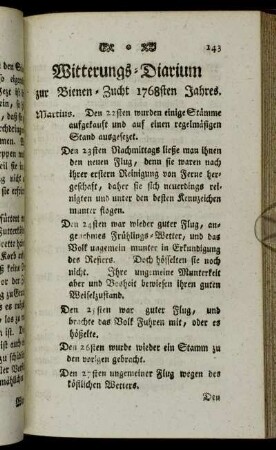 143
Witterungs-Diarium
zur Bienen-Zucht 1768sten Jahres.
Martius. Den 22sten wurden einige Stämme
aufgekauft und auf einen regelmäßigen
Stand ausgesezet.
Den 23sten Nachmittags ließe man ihnen
den neuen Flug, denn sie waren nach
ihrer erstern Reinigung von Ferne her-
geschaft, daher sie sich neuerdings rei-
nigten und unter den besten Kennzeichen
munter flogen.
Den 24sten war wieder guter Flug, an-
genehmes Frühlings-Wetter, und das
Volk ungemein munter in Erkundigung
des Refiers. Doch höselten sie noch
nicht. Ihre ungemeine Munterkeit
aber und Bosheit bewiesen ihren guten
Weiselzustand.
Den 25sten war guter Flug, und
brachte das Volk Fuhren mit, oder es
höselte.
Den 26sten wurde wieder ein Stamm zu
den vorigen gebracht.
Den 27sten ungemeiner Flug wegen des
köstlichen Wetters.
Den